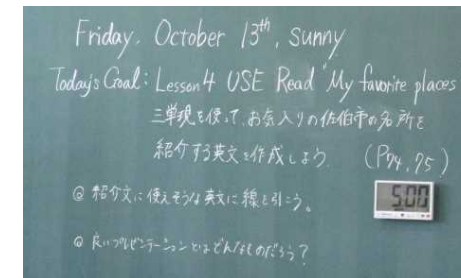 Friday, October 13th, sunny
Today's Goal: Lesson 4 USE Read "My favorite places
三単現を使って、お気入りの佐伯市の名所を
紹介する英文を作成しよう. (P74, 75)
5:00
◎ 紹介文に使えそうな英文に線を引こう。
◎ 良いプレゼンテーションとはどんなものだろう?